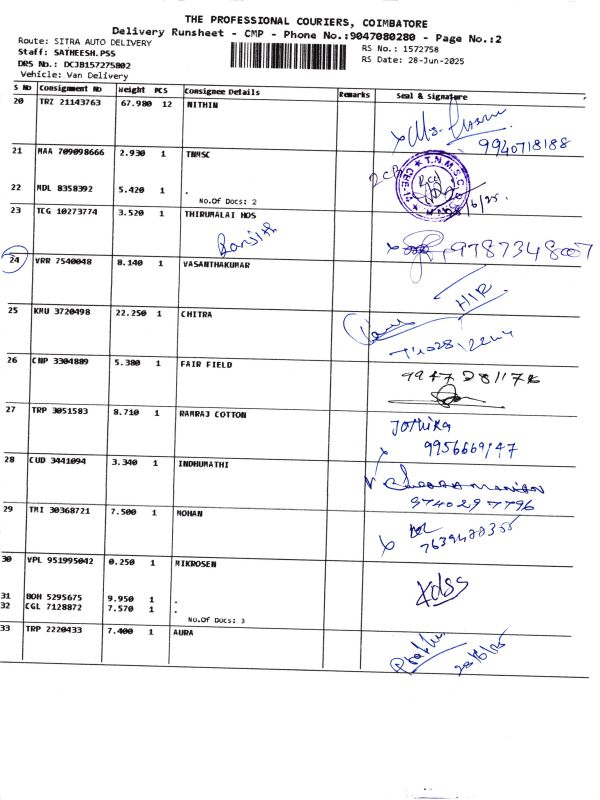 THE PROFESSIONAL COURIERS, COIMBATORE
Delivery Runsheet - CMP - Phone No.:9047080280 - Page No.:2
Route: SITRA AUTO DELIVERY
RS No.: 1572758
Staff: SATHEESH.PSS
RS Date: 28-Jun-2025
DRS No.: DCJB157275802
Vehicle: Van Delivery
S No Consignment No Weight PCS Consignee Details Remarks Seal & Signature
20 TRZ 21143763 67.980 12 NITHIN
9940718188
21 MAA 709098666 2.930 1 TNMSC
T.N.M.S.C
22 MDL 8358392 5.420 1 .
No.Of Docs: 2
23 TCG 10273774 3.520 1 THIRUMALAI HOS
Ranjith
9787348007
24 VRR 7540048 8.140 1 VASANTHAKUMAR
HIR
25 KMU 3720498 22.250 1 CHITRA
26 CNP 3304889 5.380 1 FAIR FIELD
9947281176
27 TRP 3051583 8.710 1 RAMRAJ COTTON
Jothika
9956669147
28 CUD 3441094 3.340 1 INDHUMATHI
9740297796
29 TMI 30368721 7.500 1 MOHAN
30 VPL 951995042 0.250 1 MIKROSEN
31 BOM 5295675 9.950 1 .
32 CGL 7128872 7.570 1 .
No.Of Docs: 3
33 TRP 2220433 7.400 1 AURA
28/6/25